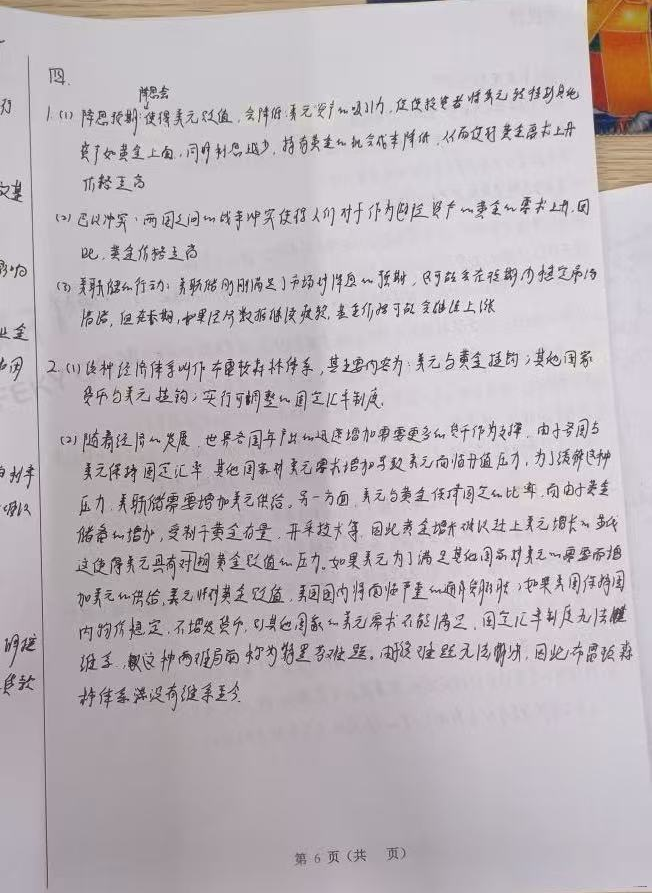 四.
降息会
1.(1) 降息预期使得美元贬值,会降低美元资产的吸引力,促使投资者将美元转移到其他
资产如黄金上面,同时利息减少,持有黄金的机会成本降低,从而使对黄金需求上升
价格走高
(2) 巴以冲突:两国之间的战争冲突使得人们对于作为避险资产的黄金的需求上升,因
此,黄金价格走高
(3) 美联储的行动:美联储刚刚满足了市场对降息的预期,只可能会在短期内稳定市场
情绪,但长期,如果经济数据继续疲软,黄金价格可能会继续上涨
2.(1) 这种经济体系叫作布雷顿森林体系,其主要内容为:美元与黄金挂钩;其他国家
货币与美元挂钩;实行可调整的固定汇率制度.
(2) 随着经济的发展,世界各国年产出的迅速增加需要更多的货币作为支撑.由于各国与
美元保持固定汇率,其他国家对美元需求增加导致美元面临升值压力,为了缓解这种
压力,美联储需要增加美元供给。另一方面,美元与黄金保持固定的比率,而由于黄金
储备的增加,受制于黄金存量、开采技术等,因此黄金增长难以赶上美元增长的
这使得美元具有对黄金贬值的压力.如果美元为了满足其他国家对美元的需要而增
加美元的供给,美元将对黄金贬值,美国国内将面临严重的通货膨胀;如果美国保持国
内物价稳定,不增发货币,则其他国家的美元需求不能满足,固定汇率制度无法维
继系.这种两难局面称为特里芬难题.由该难题无法解决,因此布雷顿森
林体系没有维系至今.
第 6 页(共 页)